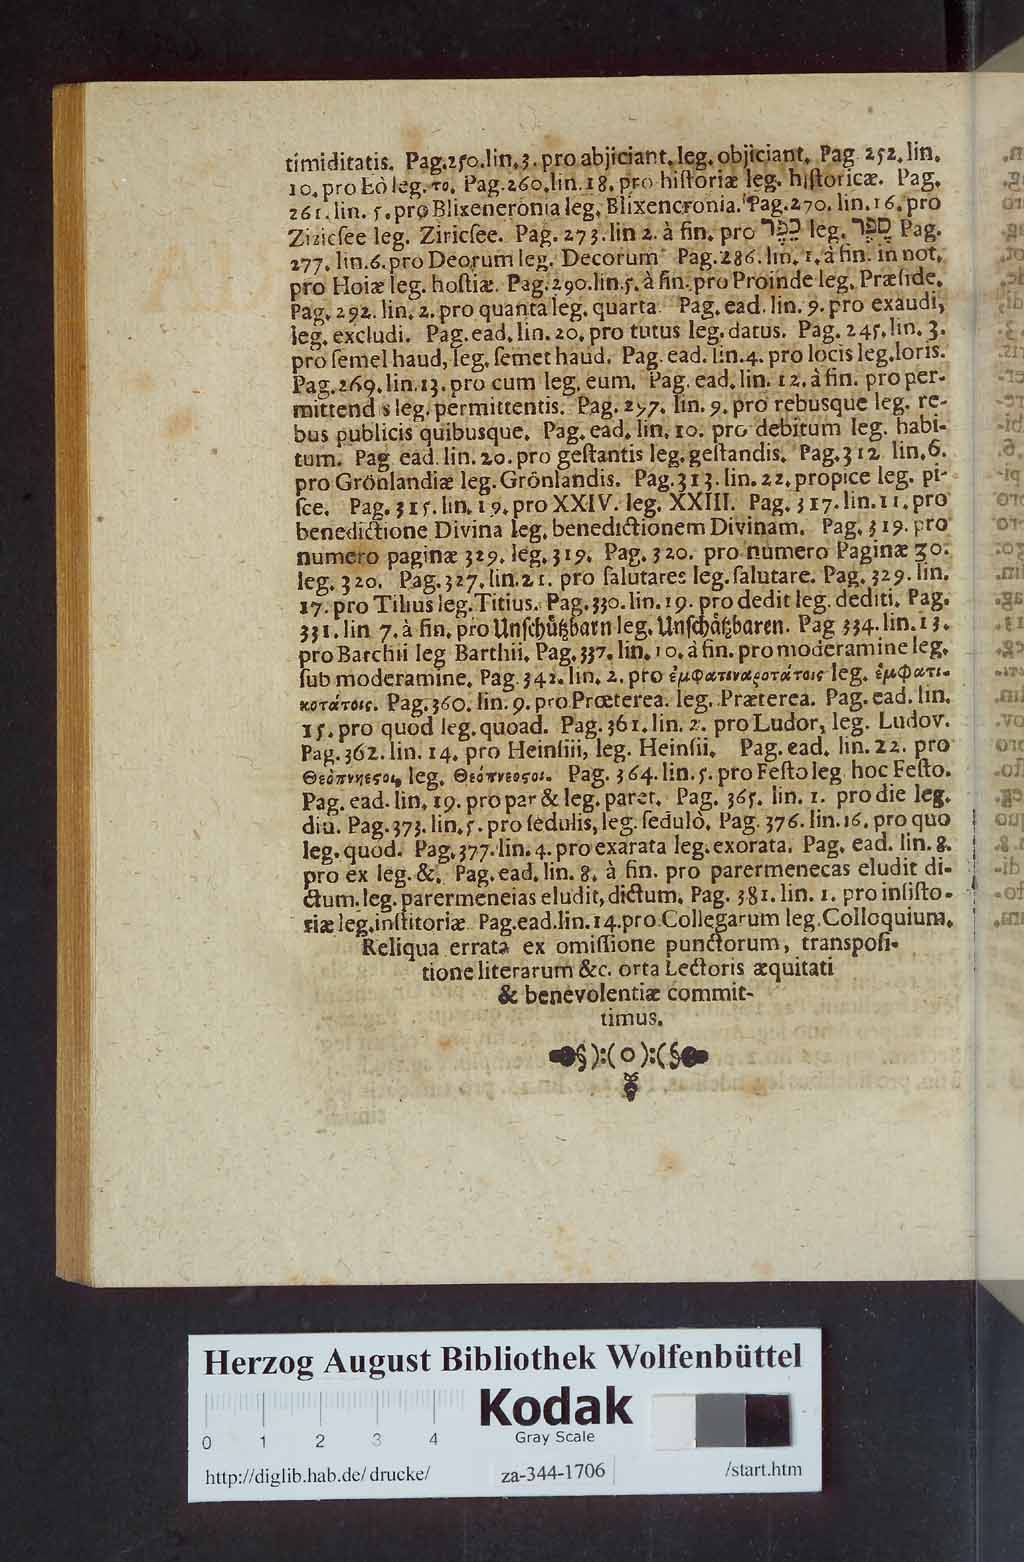 timiditatis. Pag.250.lin.3. pro abjiciant, leg. objiciant. Pag 252. lin.
10. pro Eò leg. το. Pag.260.lin.18. pro hiſtoriæ leg. hiſtoricæ. Pag.
261. lin. 5. pro Blixeneronia leg. Blixencronia. Pag.270. lin.16. pro
Zizicſee leg. Ziricſee. Pag. 273. lin 2. à fin. pro leg. Pag.
277. lin.6. pro Deorum leg. Decorum Pag.286. lin. 1. à fin. in not.
pro Hoiæ leg. hoſtiæ. Pag.290.lin.5. à fin. pro Proinde leg. Præſide.
Pag. 292. lin. 2. pro quanta leg. quarta. Pag. ead. lin. 9. pro exaudi,
leg. excludi. Pag. ead. lin. 20. pro tutus leg. datus. Pag. 245. lin. 3.
pro ſemel haud, leg. ſemet haud. Pag. ead. lin.4. pro locis leg. loris.
Pag.269. lin.13. pro cum leg. eum. Pag. ead. lin. 12. à fin. pro per-
mittend s leg. permittentis. Pag. 297. lin. 9. pro rebusque leg. re-
bus publicis quibusque. Pag. ead. lin. 10. pro debitum leg. habi-
tum. Pag ead. lin. 20. pro geſtantis leg. geſtandis. Pag. 312 lin.6.
pro Grönlandiæ leg. Grönlandis. Pag.313. lin. 22. propice leg. pi-
ſce. Pag. 315. lin. 19. pro XXIV. leg. XXIII. Pag. 317. lin.11. pro
benedictione Divina leg. benedictionem Divinam. Pag. 319. pro
numero paginæ 329. leg. 319. Pag. 320. pro numero Paginæ 30.
leg. 320. Pag.327. lin.21. pro ſalutares leg. ſalutare. Pag. 329. lin.
17. pro Tilius leg. Titius. Pag. 330. lin. 19. pro dedit leg. dediti. Pag.
331. lin 7. à fin. pro Unſchützbarn leg. Unſchätzbaren. Pag 334. lin. 13.
pro Barchii leg Barthii. Pag. 337. lin. 10. à fin. pro moderamine leg.
ſub moderamine. Pag. 342. lin. 2. pro leg. ἐμφατι-
κοτάτοις. Pag. 360. lin. 9. pro Prœterea. leg. Præterea. Pag. ead. lin.
15. pro quod leg. quoad. Pag. 361. lin. 2. pro Ludor, leg. Ludov.
Pag. 362. lin. 14. pro Heinſiii, leg. Heinſii. Pag. ead. lin. 22. pro
Θεόπνηεϛοι, leg. Θεόπνεοϛοι. Pag. 364. lin. 5. pro Feſto leg hoc Feſto.
Pag. ead. lin. 19. pro par & leg. paret. Pag. 365. lin. 1. pro die leg.
diu. Pag. 373. lin. 5. pro ſedulis, leg. ſedulò. Pag. 376. lin. 16. pro quo
leg. quod. Pag. 377. lin. 4. pro exarata leg. exorata. Pag. ead. lin. 8.
pro ex leg. &. Pag. ead. lin. 8. à fin. pro parermenecas eludit di-
ctum. leg. parermeneias eludit, dictum. Pag. 381. lin. 1. pro inſiſto-
riæ leg. inſtitoriæ Pag. ead. lin. 14. pro Collegarum leg. Colloquium.
Reliqua errata ex omiſſione punctorum, transpoſi-
tione literarum &c. orta Lectoris æquitati
& benevolentiæ commit-
timus.
§):(o):(§
Herzog August Bibliothek Wolfenbüttel
Kodak
Gray Scale
0 1 2 3 4
http://diglib.hab.de/drucke/ za-344-1706 /start.htm